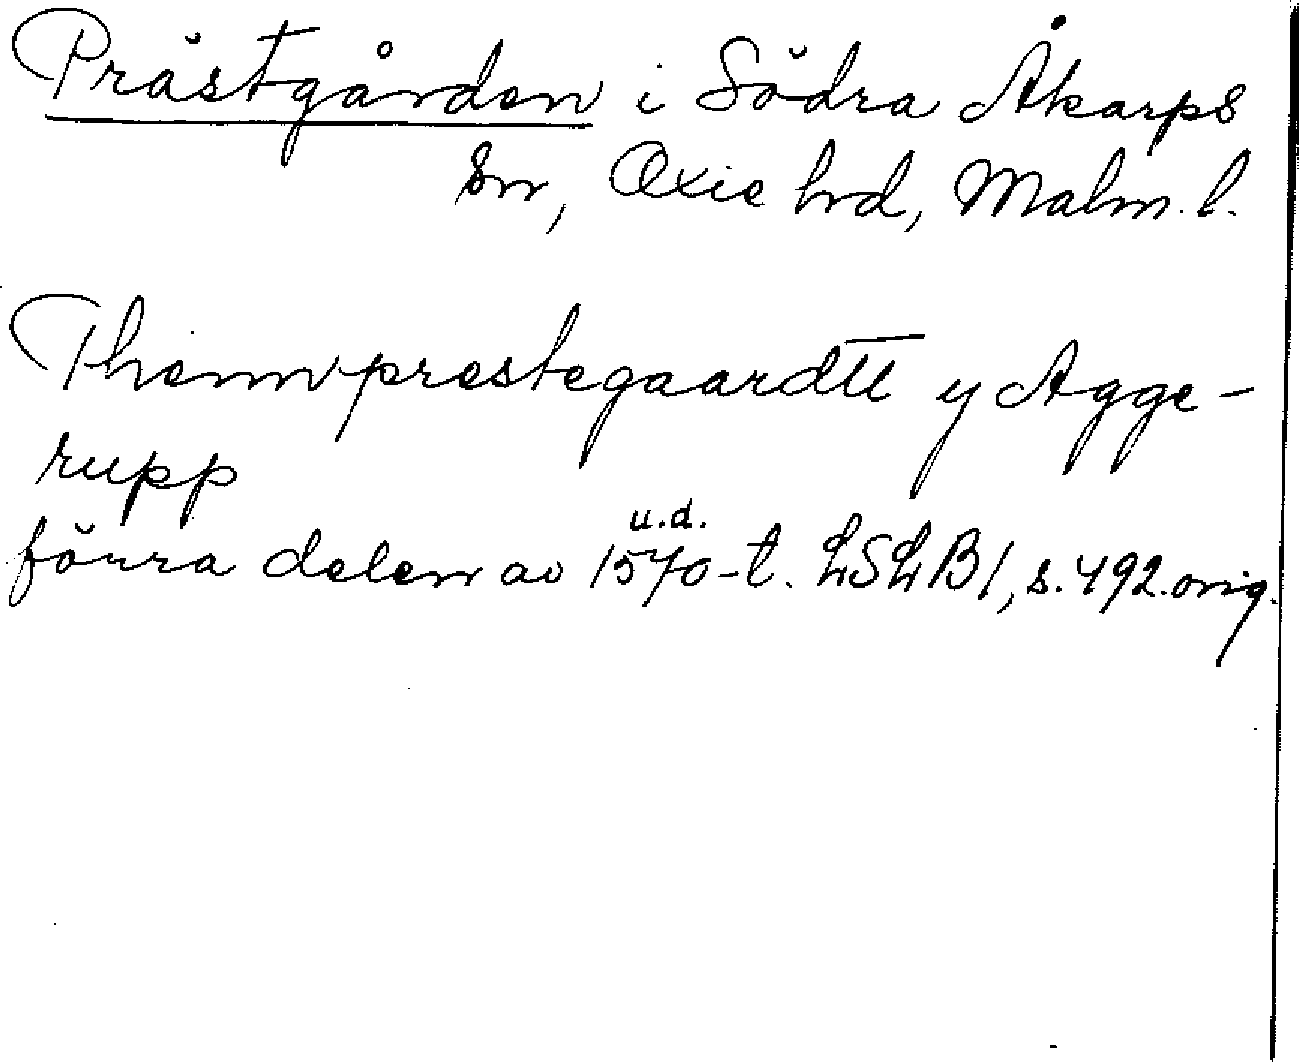 Prästgården i Södra Åkarps
sn, Oxie hrd, Malm. l.
Thenn prestegaardtt y Agge-
rupp
u.d.
förra delen av 1570-t. LSLB1, s. 492. orig.